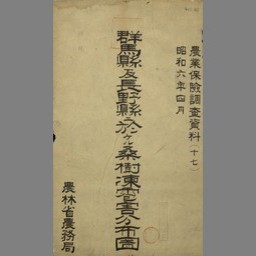 農業保險調査資料(十七)
昭和六年四月
群馬縣及長野縣ニ於ケル桑樹凍霜害分布圖
農林省農務局